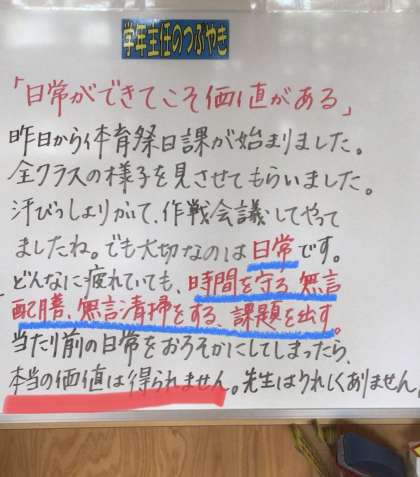 学年主任のつぶやき
「日常ができてこそ価値がある」
昨日から体育祭日課が始まりました。
全クラスの様子を見させてもらいました。
汗びっしょりかいて、作戦会議してやって
ましたね。でも大切なのは日常です。
どんなに疲れていても、時間を守る、無言
配膳、無言清掃をする、課題を出す。
当たり前の日常をおろそかにしてしまったら、
本当の価値は得られません。先生はうれしくありません。